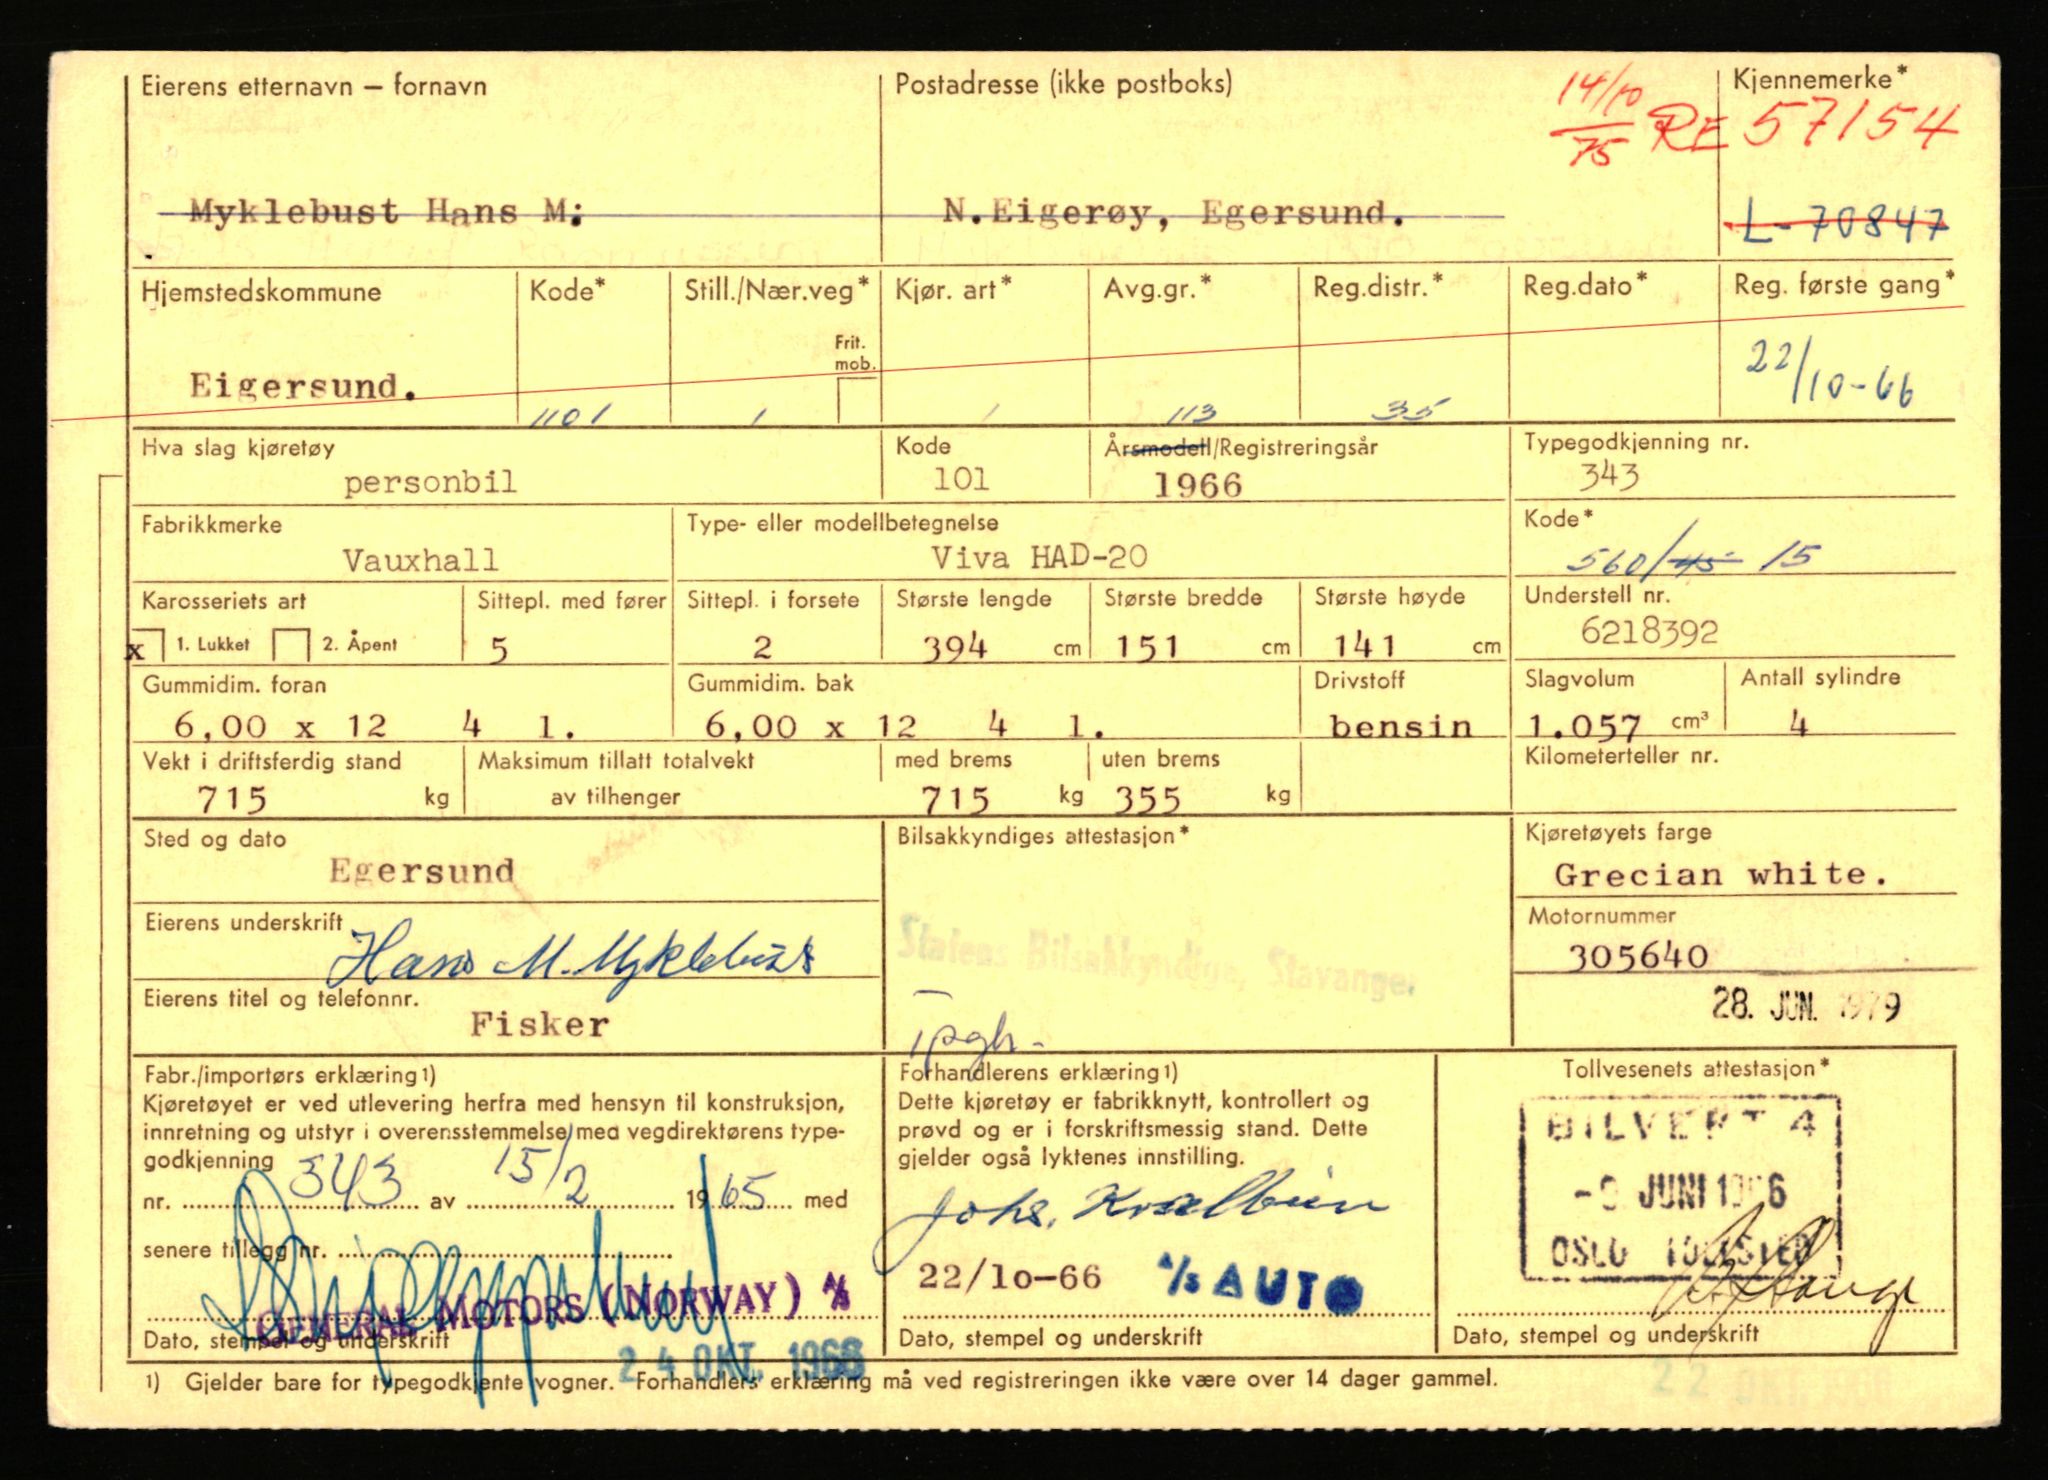 Eierens etternavn – fornavn
Postadresse (ikke postboks)
14/10 75 RE 57154
Kjennemerke*
Myklebust Hans M:
N.Eigerøy, Egersund.
L-70847
Hjemstedskommune
Kode*
Still./Nær.veg*
Kjør. art*
Avg.gr.*
Reg.distr.*
Reg.dato*
Reg. første gang*
Frit. mob.
Eigersund.
1101
1
1
113
35
22/10-66
Hva slag kjøretøy
Kode
Årsmodell/Registreringsår
Typegodkjenning nr.
personbil
101
1966
343
Fabrikkmerke
Type- eller modellbetegnelse
Kode*
Vauxhall
Viva HAD-20
560/45 15
Karosseriets art
Sittepl. med fører
Sittepl. i forsete
Største lengde
Største bredde
Største høyde
Understell nr.
x 1. Lukket
2. Åpent
5
2
394 cm
151 cm
141 cm
6218392
Gummidim. foran
Gummidim. bak
Drivstoff
Slagvolum
Antall sylindre
6,00 x 12 4 l.
6,00 x 12 4 l.
bensin
1.057 cm³
4
Vekt i driftsferdig stand
Maksimum tillatt totalvekt
med brems
uten brems
Kilometerteller nr.
715 kg
av tilhenger
715 kg
355 kg
Sted og dato
Bilsakkyndiges attestasjon*
Kjøretøyets farge
Egersund
Grecian white.
Eierens underskrift
Hans M. Myklebust
Statens Bilsakkyndige, Stavanger.
Motornummer
305640
Eierens titel og telefonnr.
Fisker
Tpgh.
28. JUN. 1979
Fabr./importørs erklæring1)
Kjøretøyet er ved utlevering herfra med hensyn til konstruksjon,
innretning og utstyr i overensstemmelse med vegdirektørens type-
godkjenning
nr. 343 av 15/2 1965 med
senere tillegg nr.
GENERAL MOTORS (NORWAY) A/S
Dato, stempel og underskrift
24 OKT. 1966
Forhandlerens erklæring1)
Dette kjøretøy er fabrikknytt, kontrollert og
prøvd og er i forskriftsmessig stand. Dette
gjelder også lyktenes innstilling.
Johs.
22/10-66
A/S AUTO
Dato, stempel og underskrift
Tollvesenets attestasjon*
BILVERT 4
-9 JUNI 1966
OSLO TOLLSTED
Dato, stempel og underskrift
22 OKT.
1) Gjelder bare for typegodkjente vogner. Forhandlers erklæring må ved registreringen ikke være over 14 dager gammel.